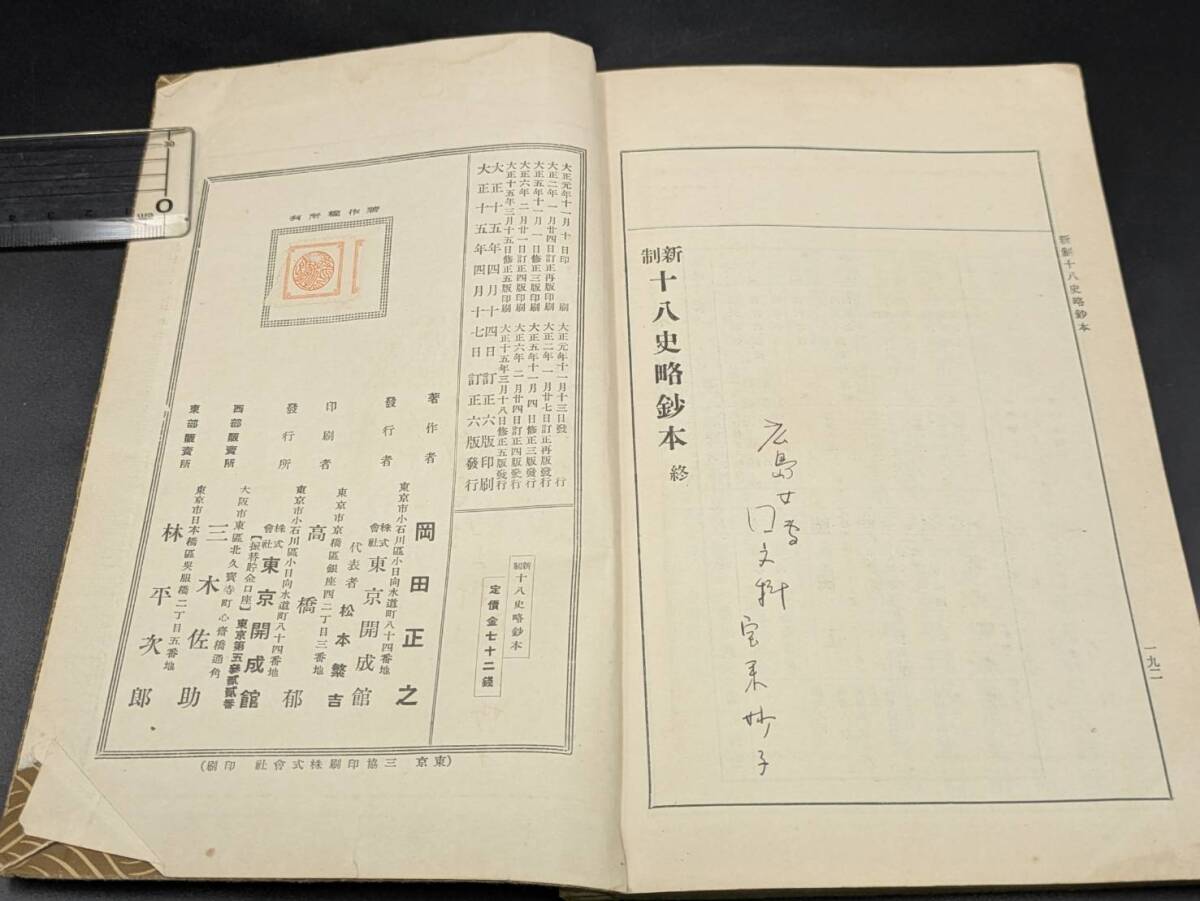 新制十八史略鈔本
一九二
新制 十八史略鈔本 終
広島女専
国文科 宝来妙子
大正元年十一月十日印刷 大正元年十一月十三日發行
大正二年一月廿四日訂正再版印刷 大正二年一月廿七日訂正再版發行
大正五年十一月一日修正三版印刷 大正五年十一月四日修正三版發行
大正六年二月廿一日訂正四版印刷 大正六年二月廿四日訂正四版發行
大正十五年三月十五日修正五版印刷 大正十五年三月十八日修正五版發行
大正十五年四月十四日訂正六版印刷
大正十五年四月十七日訂正六版發行
新制 十八史略鈔本
定價金七十二錢
著作權所有
著作者 岡田正之
東京市小石川區小日向水道町八十四番地
發行者 株式會社 東京開成館
代表者 松本繁吉
東京市京橋區銀座四丁目三番地
印刷者 高橋郁
東京市小石川區小日向水道町八十四番地
發行所 株式會社 東京開成館
【振替貯金口座】東京第五參貳貳番
大阪市東區北久寶寺町心齋橋通角
西部販賣所 三木佐助
東京市日本橋區吳服橋二丁目五番地
東部販賣所 林平次郎
(東京 三協印刷株式會社 印刷)
0
30